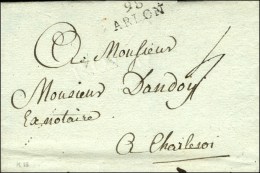 98
ARLON
A Monsieur
Monsieur Dandoy
Exnotaire
A Charleroi